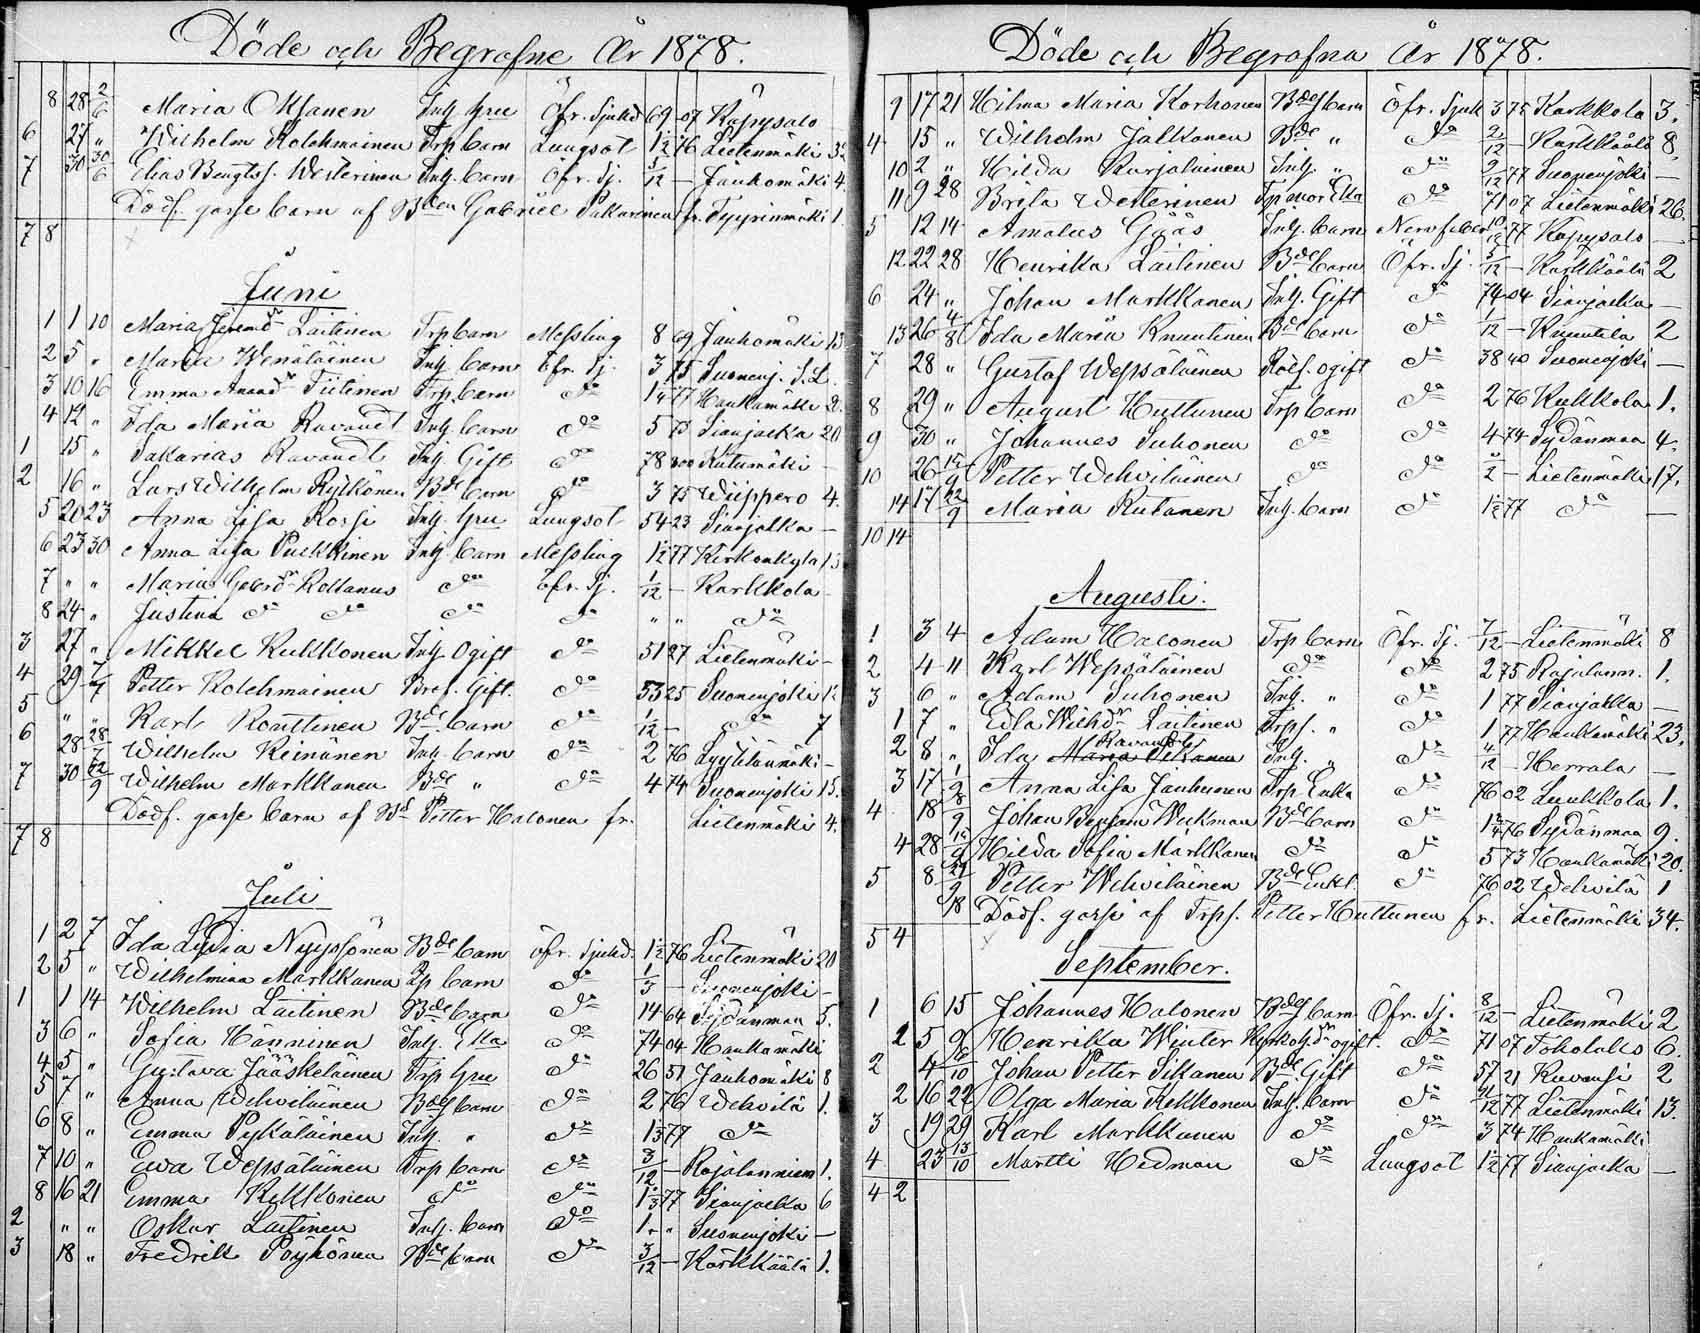 Döde och Begrafne År 1878.
8 28 2/6 Maria Oksanen Inh. hru Öfr. Sjukd 69 07 Käpysalo
6 27 " Wilhelm Kolehmainen Trp. barn Lungsot 1 1/2 76 Lietenmäki
7 30 30/6 Elias Bengtss. Westerinen Inh. barn Öfr. Sj. 5/12 — Jauhomäki 4.
Dödf. gosse barn af Bden Gabriel Pakarinen fr. Tyyrinmäki 1.
7 8
Juni
1 1 10 Maria Laitinen Trp barn Messling 8 69 Jauhomäki 13
2 5 " Maria Wenäläinen Inh. barn Öfr. Sj. 3 75 Suonenj.
3 10 16 Emma Tiitinen Trp. barn do 77 Haukamäki 2.
4 12 " Ida Maria Ravandt Inh. barn do 5 73 Sianjaska 20
1 15 " Sakarias Ravandt Inh. Gift do 78 800 Kutumäki —
2 16 " Lars Wilhelm Rytkönen Bde barn do 3 75 Wiippero 4.
5 20 23 Anna Lisa Rossi Inh. hru Lungsot 54 23 Sianjalka —
6 23 30 Anna Lisa Purkkinen Inh. barn Messling 1 1/2 77 Kirkonkylä 13
7 " " Maria do Öfr. Sj. 1/12 — Karkkola —
8 24 " Justina do do do do " " do
3 27 " Mikkel Kukkonen Inh. Ogift do 51 27 Lietenmäki —
4 29 7/7 Petter Kolehmainen Gift. do 53 25 Suonenjoki 12
5 " " Karl Konttinen Bde barn do 1/12 — do 7
6 28 28/7 Wilhelm Keinänen Inh. barn do 2 76 Lyytilänmäki —
7 30 22/9 Wilhelm Markkanen Bde " do 4 74 Suonenjoki 15.
Dödf. gosse barn af Bd Petter Halonen fr. Lietenmäki 4.
7 8
Juli
1 2 7 Ida Lydia Nyyssönen Bde barn öfr. Sjukd. 1 1/2 76 Lietenmäki 20
2 5 " Wilhelmina Markkanen barn do Suonenjoki —
1 1 14 Wilhelm Laitinen Bde barn do 14 64 Sydänmaa 5.
3 6 " Sofia Hänninen Inh. Eka do 74 04 Haukamäki
4 5 " Gustava Jääskeläinen Trp hru do 26 51 Jauhomäki 8
5 7 " Anna Wehviläinen Bdes barn do 2 76 Wehvilä 1.
6 8 " Emma Pykäläinen Inh. " do 1 77 do
7 10 " Ewa Wepsäläinen Trp barn do 3/12 — Rajalanniem 1.
8 16 21 Emma Kekkonen do do 1 77 Sianjaska 6
2 " " Oskar Laitinen Inh. barn do 1 " " Suonenjoki —
3 18 " Fredrik Pöykönen Bde barn do 3/12 — Kärkkäälä 1.
Döde och Begrafna År 1878.
9 17 21 Hilma Maria Korhonen Bdes barn Öfr. Sjuk 3 75 Karkkola 3.
4 15 " Wilhelm Jalkanen Bde " do 2/12 — Kärkkäälä 8.
10 2 " Hilda Karjalainen Inh. " do 9/12 77 Suonenjoki —
11 9 28 Brita Westerinen Eka do 71 07 Lietenmäki 26.
5 12 14 Amalus Göös Inh. barn Nervfeber 10/12 77 Käpysalo —
12 22 28 Henrika Laitinen Bde barn Öfr. Sj. 5/12 — Kärkkäälä 2
6 24 " Johan Markkanen Inh. Gift do 74 04 Sianjaska —
13 26 4/8 Ida Maria Knuutinen Bde barn do 1/12 — Knuutila 2
7 28 " Gustaf Wepsäläinen ogift do 38 40 Suonenjoki —
8 29 " August Huttunen Trp barn do 2 76 Kukkola 1.
9 30 " Johannes Suhonen do do 4 74 Sydänmaa 4.
10 26 Petter Wehviläinen do do — Lietenmäki 17.
14 17 22/9 Maria Rutanen Inh. barn do 1 1/2 77 do —
10 14
Augusti.
1 3 4 Adam Halonen Trp barn Öfr. Sj. 7/12 — Lietenmäki 8
2 4 11 Karl Wepsäläinen do do 2 75 Rajalann. 1.
3 6 " Adam Suhonen Inh. " do 1 77 Sianjalka —
1 7 " Edla Laitinen Trps. " do 1 77 Haukamäki 23.
2 8 " Ida Inh. " do 4/12 — Herrala —
3 17 1/9 Anna Lisa Jauhunen Trp. Enka do 76 02 Luukkola 1.
4 18 8/9 Johan Benjam Wickman Bde barn do 76 Sydänmaa 9.
4 28 Hilda Sofia Markkanen do do 5 73 Haukamäki 20.
5 8 Petter Wehviläinen Bde Enkl. do 76 02 Wehvilä 1
18 Dödf. gosse af Trps. Petter Huttunen fr. Lietenmäki 34.
5 4
September.
1 6 15 Johannes Halonen Bdes barn Öfr. Sj. 8/12 — Lietenmäki 2
1 5 9 Henrika Winter ogift. do 71 07 Toholaks 6.
2 4 Johan Petter Sikanen Bde. Gift do 57 21 Kuvansi 2
2 16 22 Olga Maria Kekkonen Inh. barn do 77 Lietenmäki 13.
3 19 29 Karl Markkanen do do 3 74 Haukamäki
4 23 13/10 Martti Hedman do Lungsot 1 1/2 77 Sianjaska —
4 2